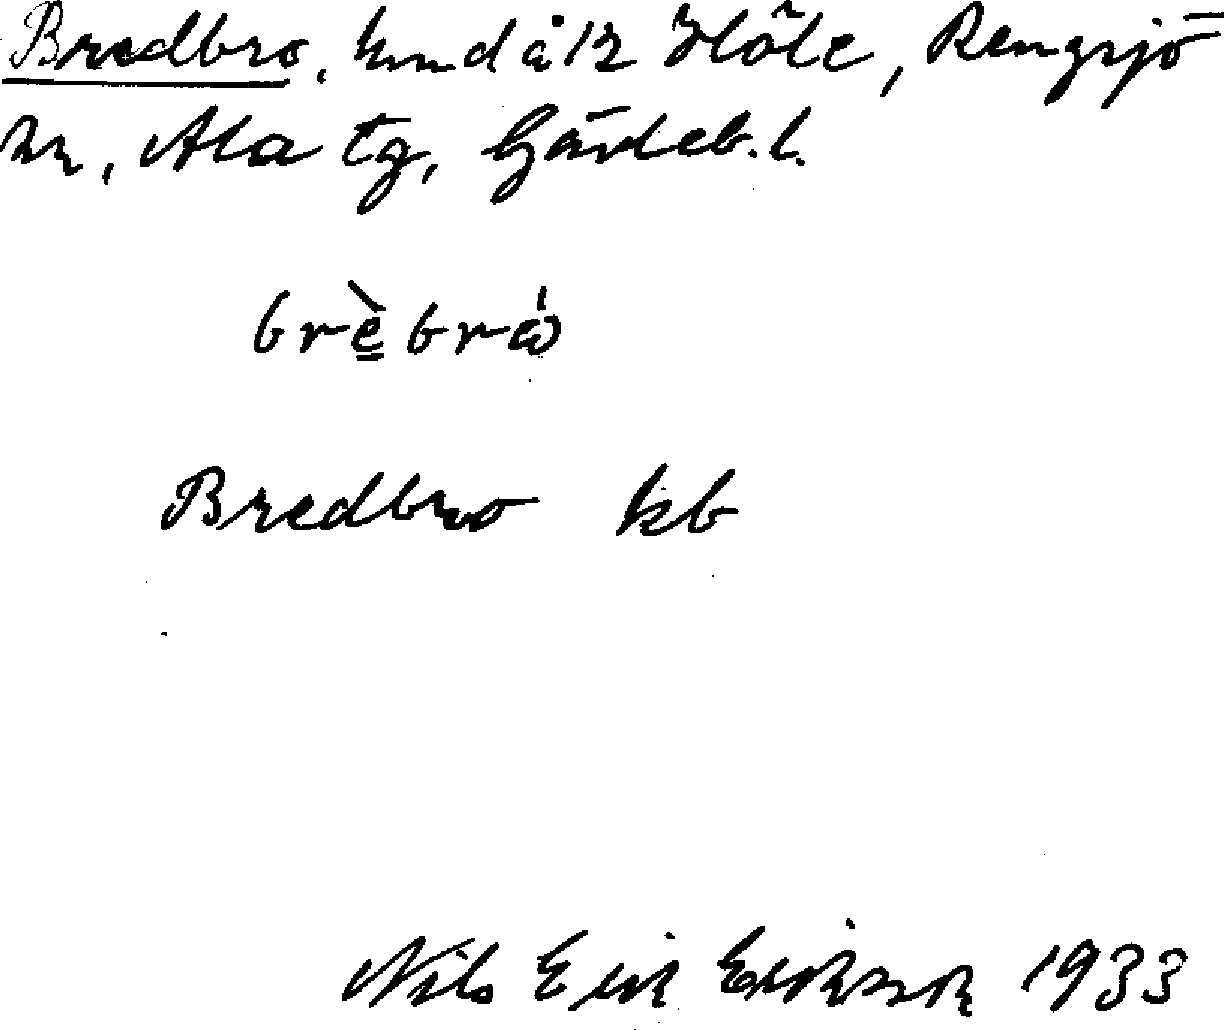 Bredbro, hmd å 12 Höle, Rengsjö
sn, Ala tg, Gävleb. l.
brèbrò
Bredbro kb
Nils Eric Ericsson 1933